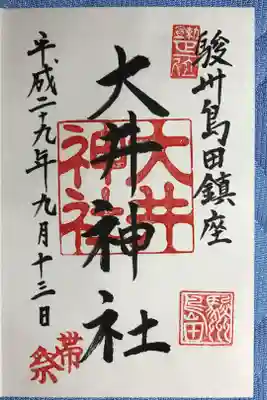 駿州島田鎮座
大井神社
大井神社
平成二十九年九月十三日
帯祭
駿州島田